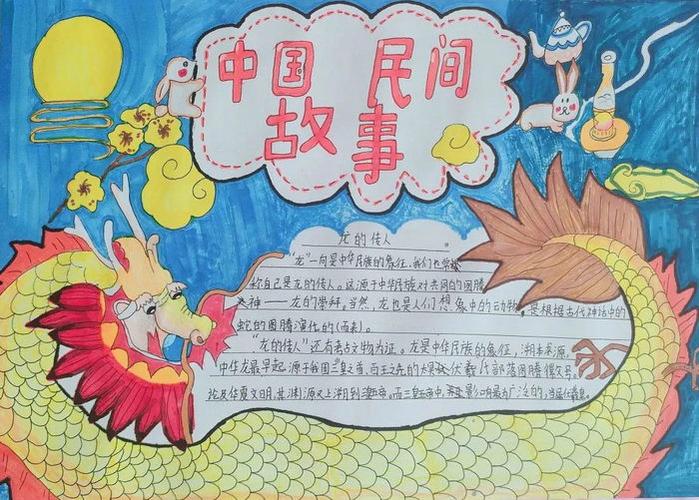 中国 民间
故事
龙的传人
“龙”一向是中华民族的象征,我们也常被
称自己是龙的传人。这源于中华民族对共同的图腾
之神——龙的崇拜。当然,龙也是人们想象中的动物,是根据古代神话中的
蛇的图腾演化的(而来)。
“龙的传人”还有考古文物为证。龙是中华民族的象征,溯本求源,
中华龙最早起源于我国三皇之首,而王之先的太昊伏羲氏部落图腾
论及华夏文明,其渊源又上溯到三皇五帝。而三皇五帝中,影响最为广泛的,当属伏羲。